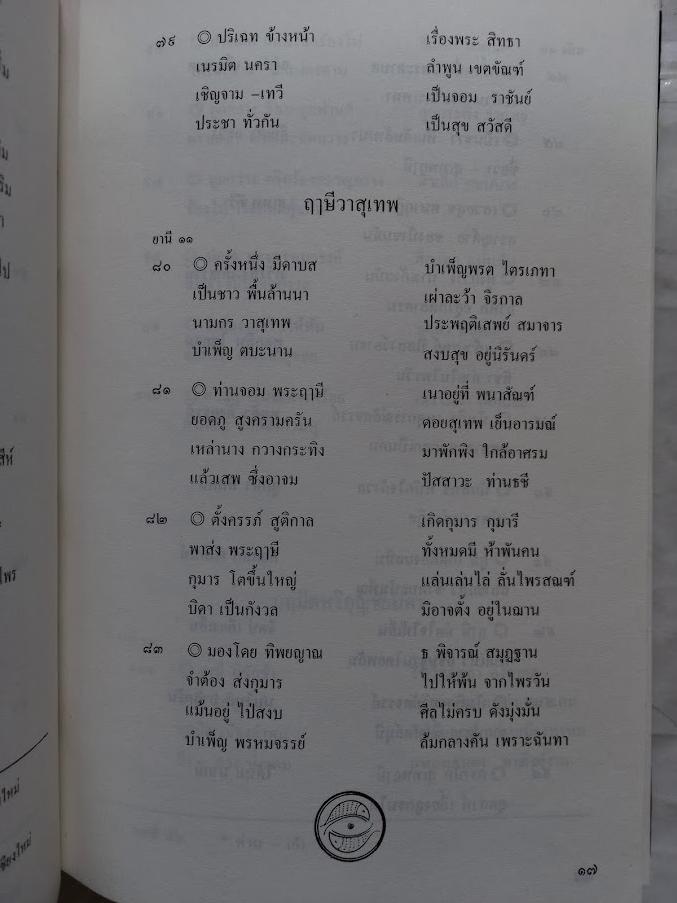 ๗๙ ◎ ปริเฉท ข้างหน้า เรื่องพระ สิทธา
เนรมิต นครา ลำพูน เขตขัณฑ์
เชิญจาม –เทวี เป็นจอม ราชันย์
ประชา ทั่วกัน เป็นสุข สวัสดี
ฤๅษีวาสุเทพ
ยานี ๑๑
๘๐ ◎ ครั้งหนึ่ง มีดาบส บำเพ็ญพรต ไตรเภทา
เป็นชาว พื้นล้านนา เผ่าละว้า จิรกาล
นามกร วาสุเทพ ประพฤติเสพย์ สมาจาร
บำเพ็ญ ตบะนาน สงบสุข อยู่นิรันดร์
๘๑ ◎ ท่านจอม พระฤๅษี เนาอยู่ที่ พนาสัณฑ์
ยอดภู สูงครามครัน ดอยสุเทพ เย็นอารมณ์
เหล่านาง กวางกระทิง มาพักพิง ใกล้อาศรม
แล้วเสพ ซึ่งอาจม ปัสสาวะ ท่านธชี
๘๒ ◎ ตั้งครรภ์ สูติกาล เกิดกุมาร กุมารี
พาส่ง พระฤๅษี ทั้งหมดมี ห้าพันคน
กุมาร โตขึ้นใหญ่ แล่นเล่นไล่ ลั่นไพรสณฑ์
บิดา เป็นกังวล มิอาจตั้ง อยู่ในฌาน
๘๓ ◎ มองโดย ทิพยญาณ ธ พิจารณ์ สมุฏฐาน
จำต้อง ส่งกุมาร ไปให้พ้น จากไพรวัน
แม้นอยู่ ไปสงบ ศีลไม่ครบ ดังมุ่งมั่น
บำเพ็ญ พรหมจรรย์ ล้มกลางคัน เพราะฉันทา
๑๗